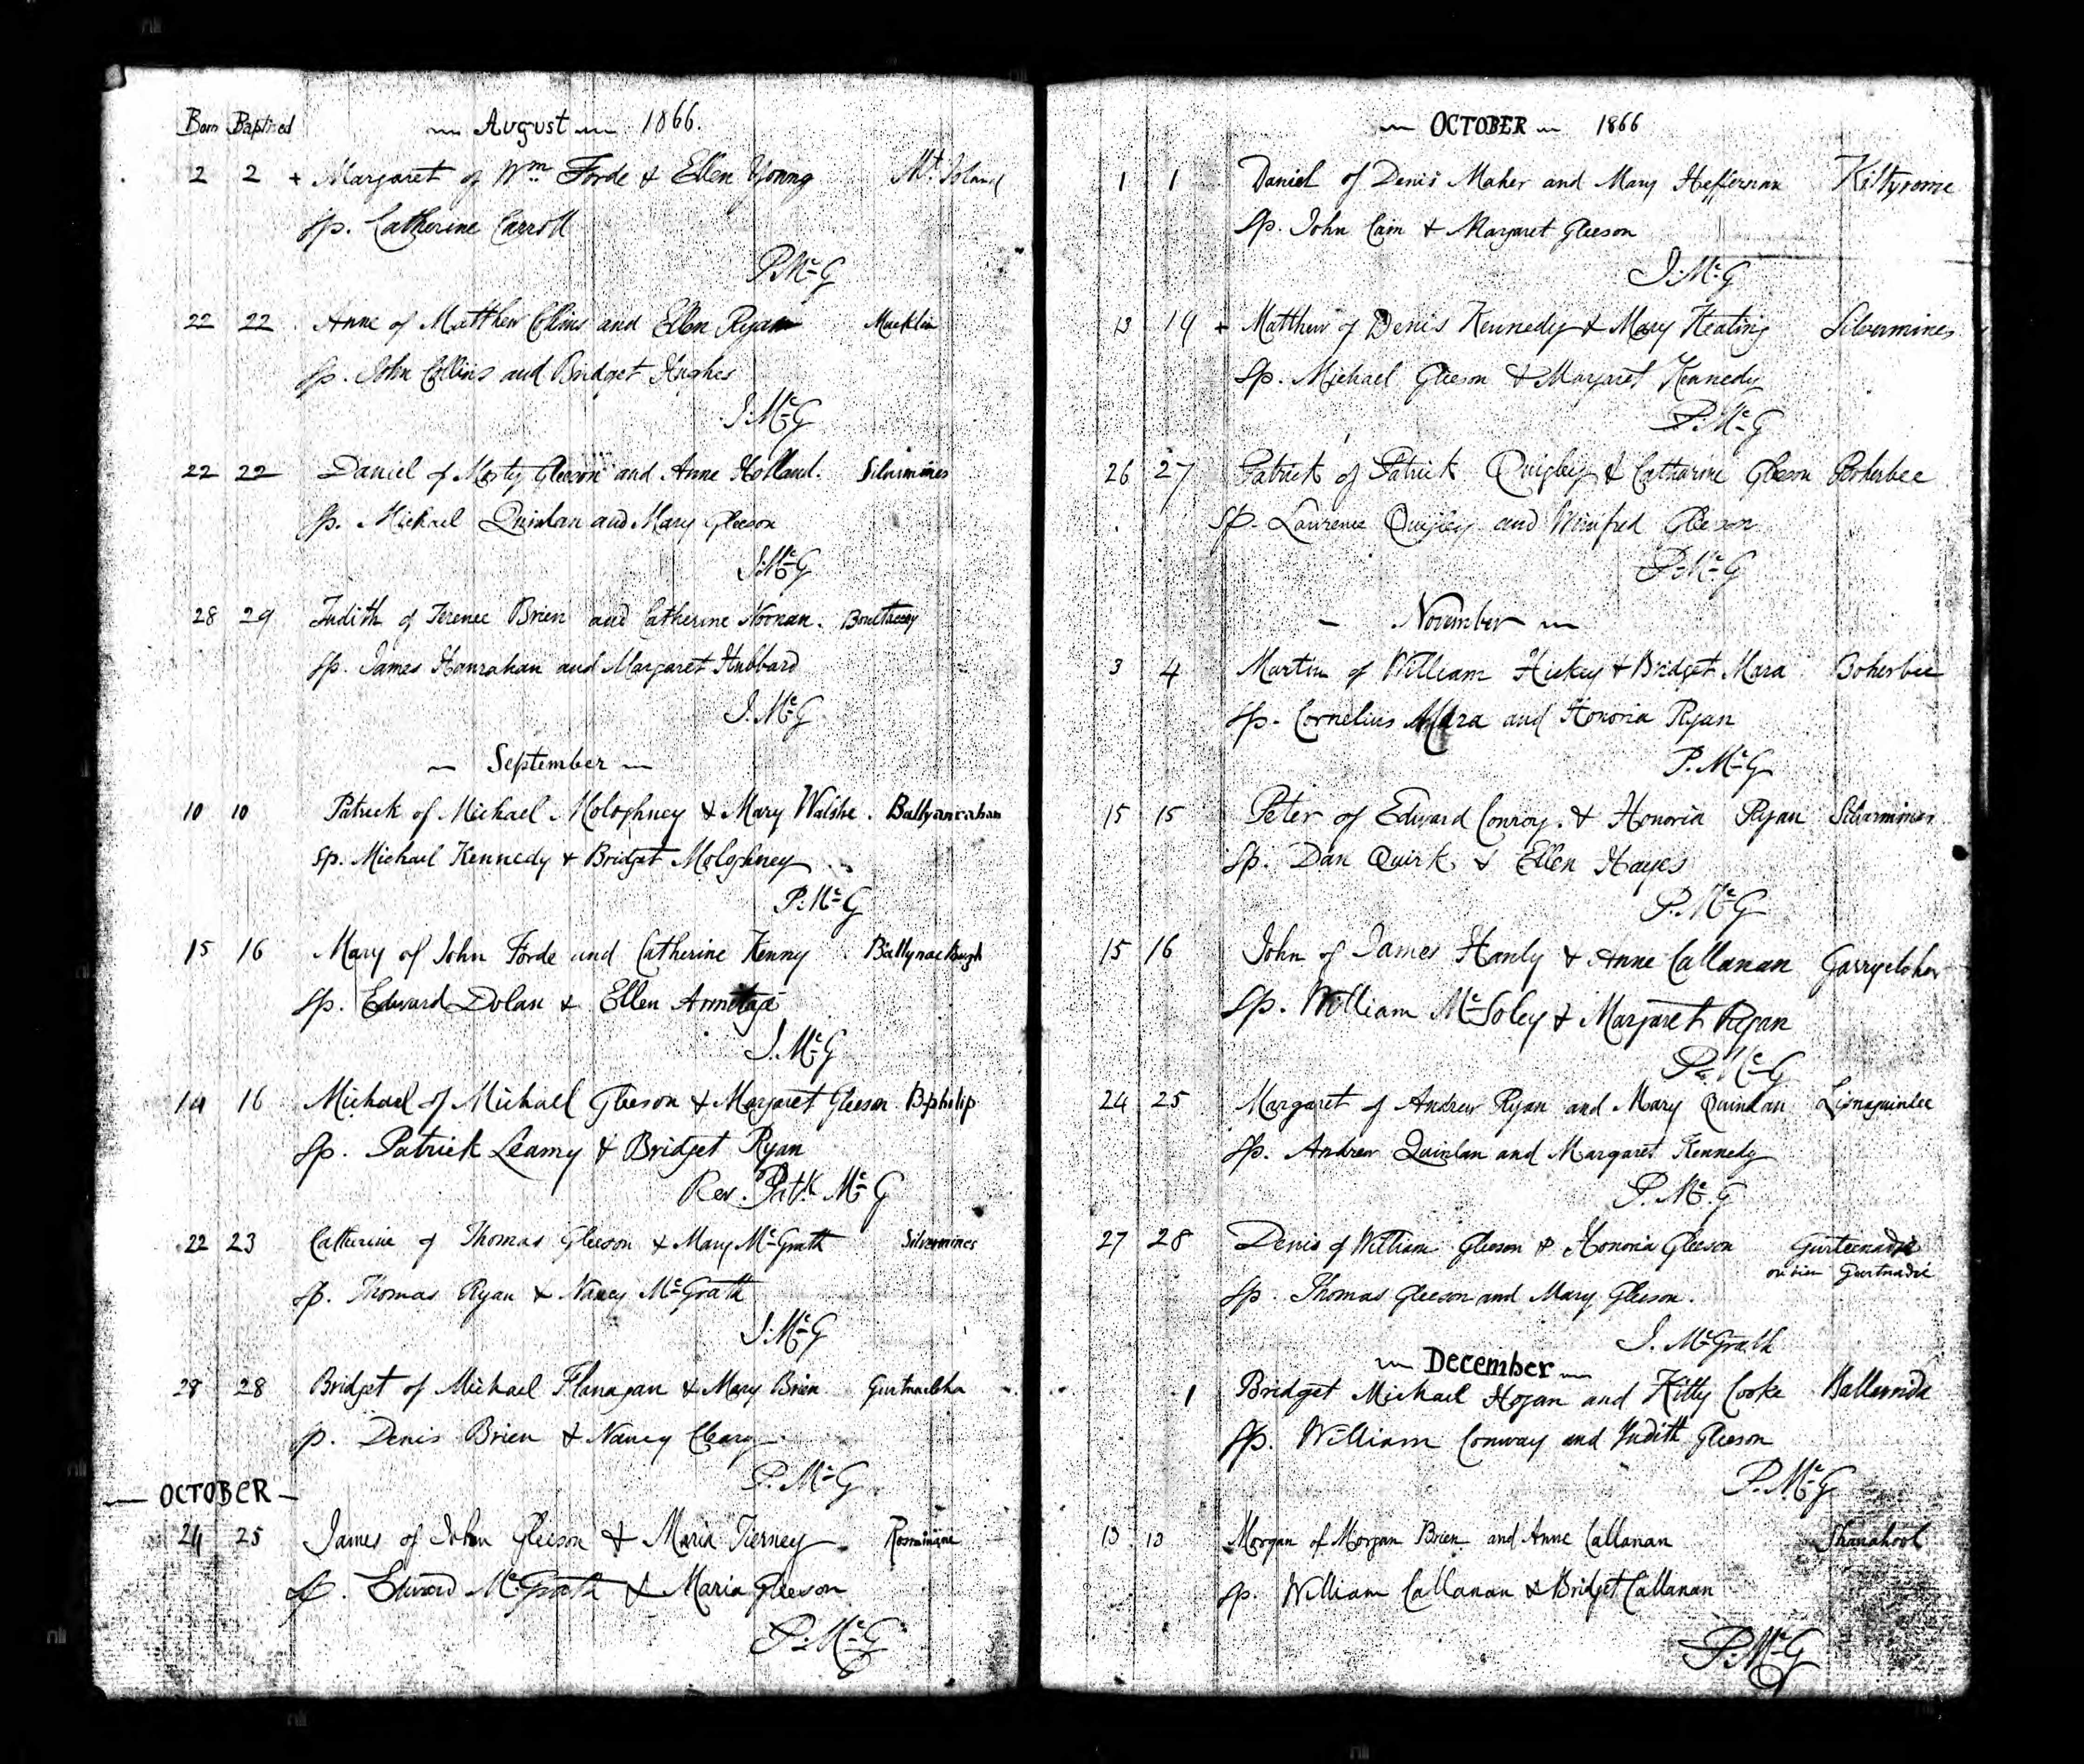 Born Baptised — August — 1866.
2 2 + Margaret of Wm. Forde & Ellen Young Mt. Island
Sp. Catherine Carroll
P. McG
22 22 Anne of Matthew Collins and Ellen Ryan Macklin
Sp. John Collins and Bridget Hughes
J. McG
22 22 Daniel of Morty Gleeson and Anne Holland. Silvermines
Sp. Michael Quinlan and Mary Gleeson
J. McG
28 29 Judith of Terence Brien and Catherine Noonan.
Sp. James Hanrahan and Margaret Hubbard
J. McG
— September —
10 10 Patrick of Michael Mologhney & Mary Walshe. Ballyanrahan
Sp. Michael Kennedy & Bridget Mologhney
P. McG
15 16 Mary of John Forde and Catherine Kenny
Sp. Edward Dolan & Ellen Armitage
J. McG
14 16 Michael of Michael Gleeson & Margaret Gleeson Bphilip
Sp. Patrick Leamy & Bridget Ryan
Rev. Patk McG
22 23 Catherine of Thomas Gleeson & Mary McGrath Silvermines
Sp. Thomas Ryan & Nancy McGrath
J. McG
28 28 Bridget of Michael Flanagan & Mary Brien
Sp. Denis Brien & Nancy Cleary
P. McG
— OCTOBER —
24 25 James of John Gleeson & Maria Tierney
Sp. Edward McGrath & Maria Gleeson
P. McG
— OCTOBER — 1866
1 1 Daniel of Denis Maher and Mary Heffernan Kiltyrome
Sp. John Cain & Margaret Gleeson
J. McG
13 14 + Matthew of Denis Kennedy & Mary Keating Silvermines
Sp. Michael Gleeson & Margaret Kennedy
P. McG
26 27 Patrick of Patrick Quigley & Catharine Gleeson Boherbee
Sp. Lawrence Quigley and Winifred Gleeson
P. McG
— November —
3 4 Martin of William Hickey & Bridget Mara Boherbee
Sp. Cornelius Mara and Honoria Ryan
P. McG
15 15 Peter of Edward Conroy. & Honoria Ryan Silvermines
Sp. Dan Quirk & Ellen Hayes
P. McG
15 16 John of James Hanly & Anne Callanan Garrycloher
Sp. William McSoley & Margaret Ryan
P. McG
24 25 Margaret of Andrew Ryan and Mary Quinlan Lisnaguinlee
Sp. Andrew Quinlan and Margaret Kennedy
P. McG
27 28 Denis of William Gleeson & Honoria Gleeson Gurteenadie
Gurtnadie
Sp. Thomas Gleeson and Mary Gleeson.
J. McGrath
— December —
1 Bridget Michael Hogan and Kitty Cooke
Sp. William Conway and Judith Gleeson
P. McG
13 13 Morgan of Morgan Brien and Anne Callanan Shanakool
Sp. William Callanan & Bridget Callanan
P. McG